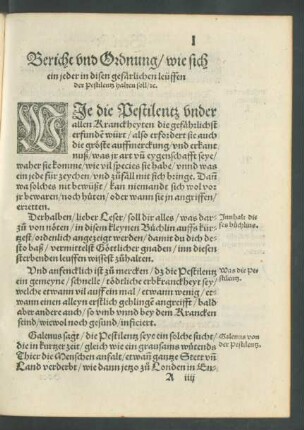 1
Bericht vnd Ordnung / wie sich
ein jeder in disen gefärlichen leüffen
der Pestilentz halten soll / ꝛc.
WIe die Pestilentz vnder
allen Kranckheyten die gefährlichst
erfunde würt / also erfordert sie auch
die gröste auffmerckung / vnd erkant
nuß / was jr art vñ eygenschafft seye /
waher sie komme / wie vil species sie habe / vnnd was
ein jede für zeychen / vnd zůfäll mit sich bringe. Dañ
wa solches nit bewüst / kan niemande sich wol vor
jr bewaren / noch hüten / oder wann sie jn angriffen /
erretten.
Derhalben / lieber Leser / soll dir alles / was dar-
zů von nöten / in disem kleynen Büchlin auffs kür-
tzest / ordenlich angezeygt werden / damit du dich de-
sto baß / vermittelst Göttlicher gnaden / inn disen
sterbenden leuffen wissest zůhalten.
Innhalt die-
ses büchlins.
Vnd anfencklich ist zů mercken / dz die Pestilentz
ein gemeyne / schnelle / tödtliche erbkranckheyt sey /
welche etwann vil auff ein mal / etwann wenig / et-
wann einen alleyn erstlich gehlinge angreifft / bald
aber andere auch / so vmb vnnd bey dem Krancken
seind / wiewol noch gesund / inficiert.
Was die Pe-
stilentz.
Galenus sagt / die Pestilentz seye ein solche sucht /
die in kurtzer zeit / gleich wie ein grausams wütends
Thier die Menschen anfalt / etwañ gantze Stett vñ
Land verderbt / wie dann jetzo zů Londen in En-
Galenus von
der Pestilentz.
A iiij